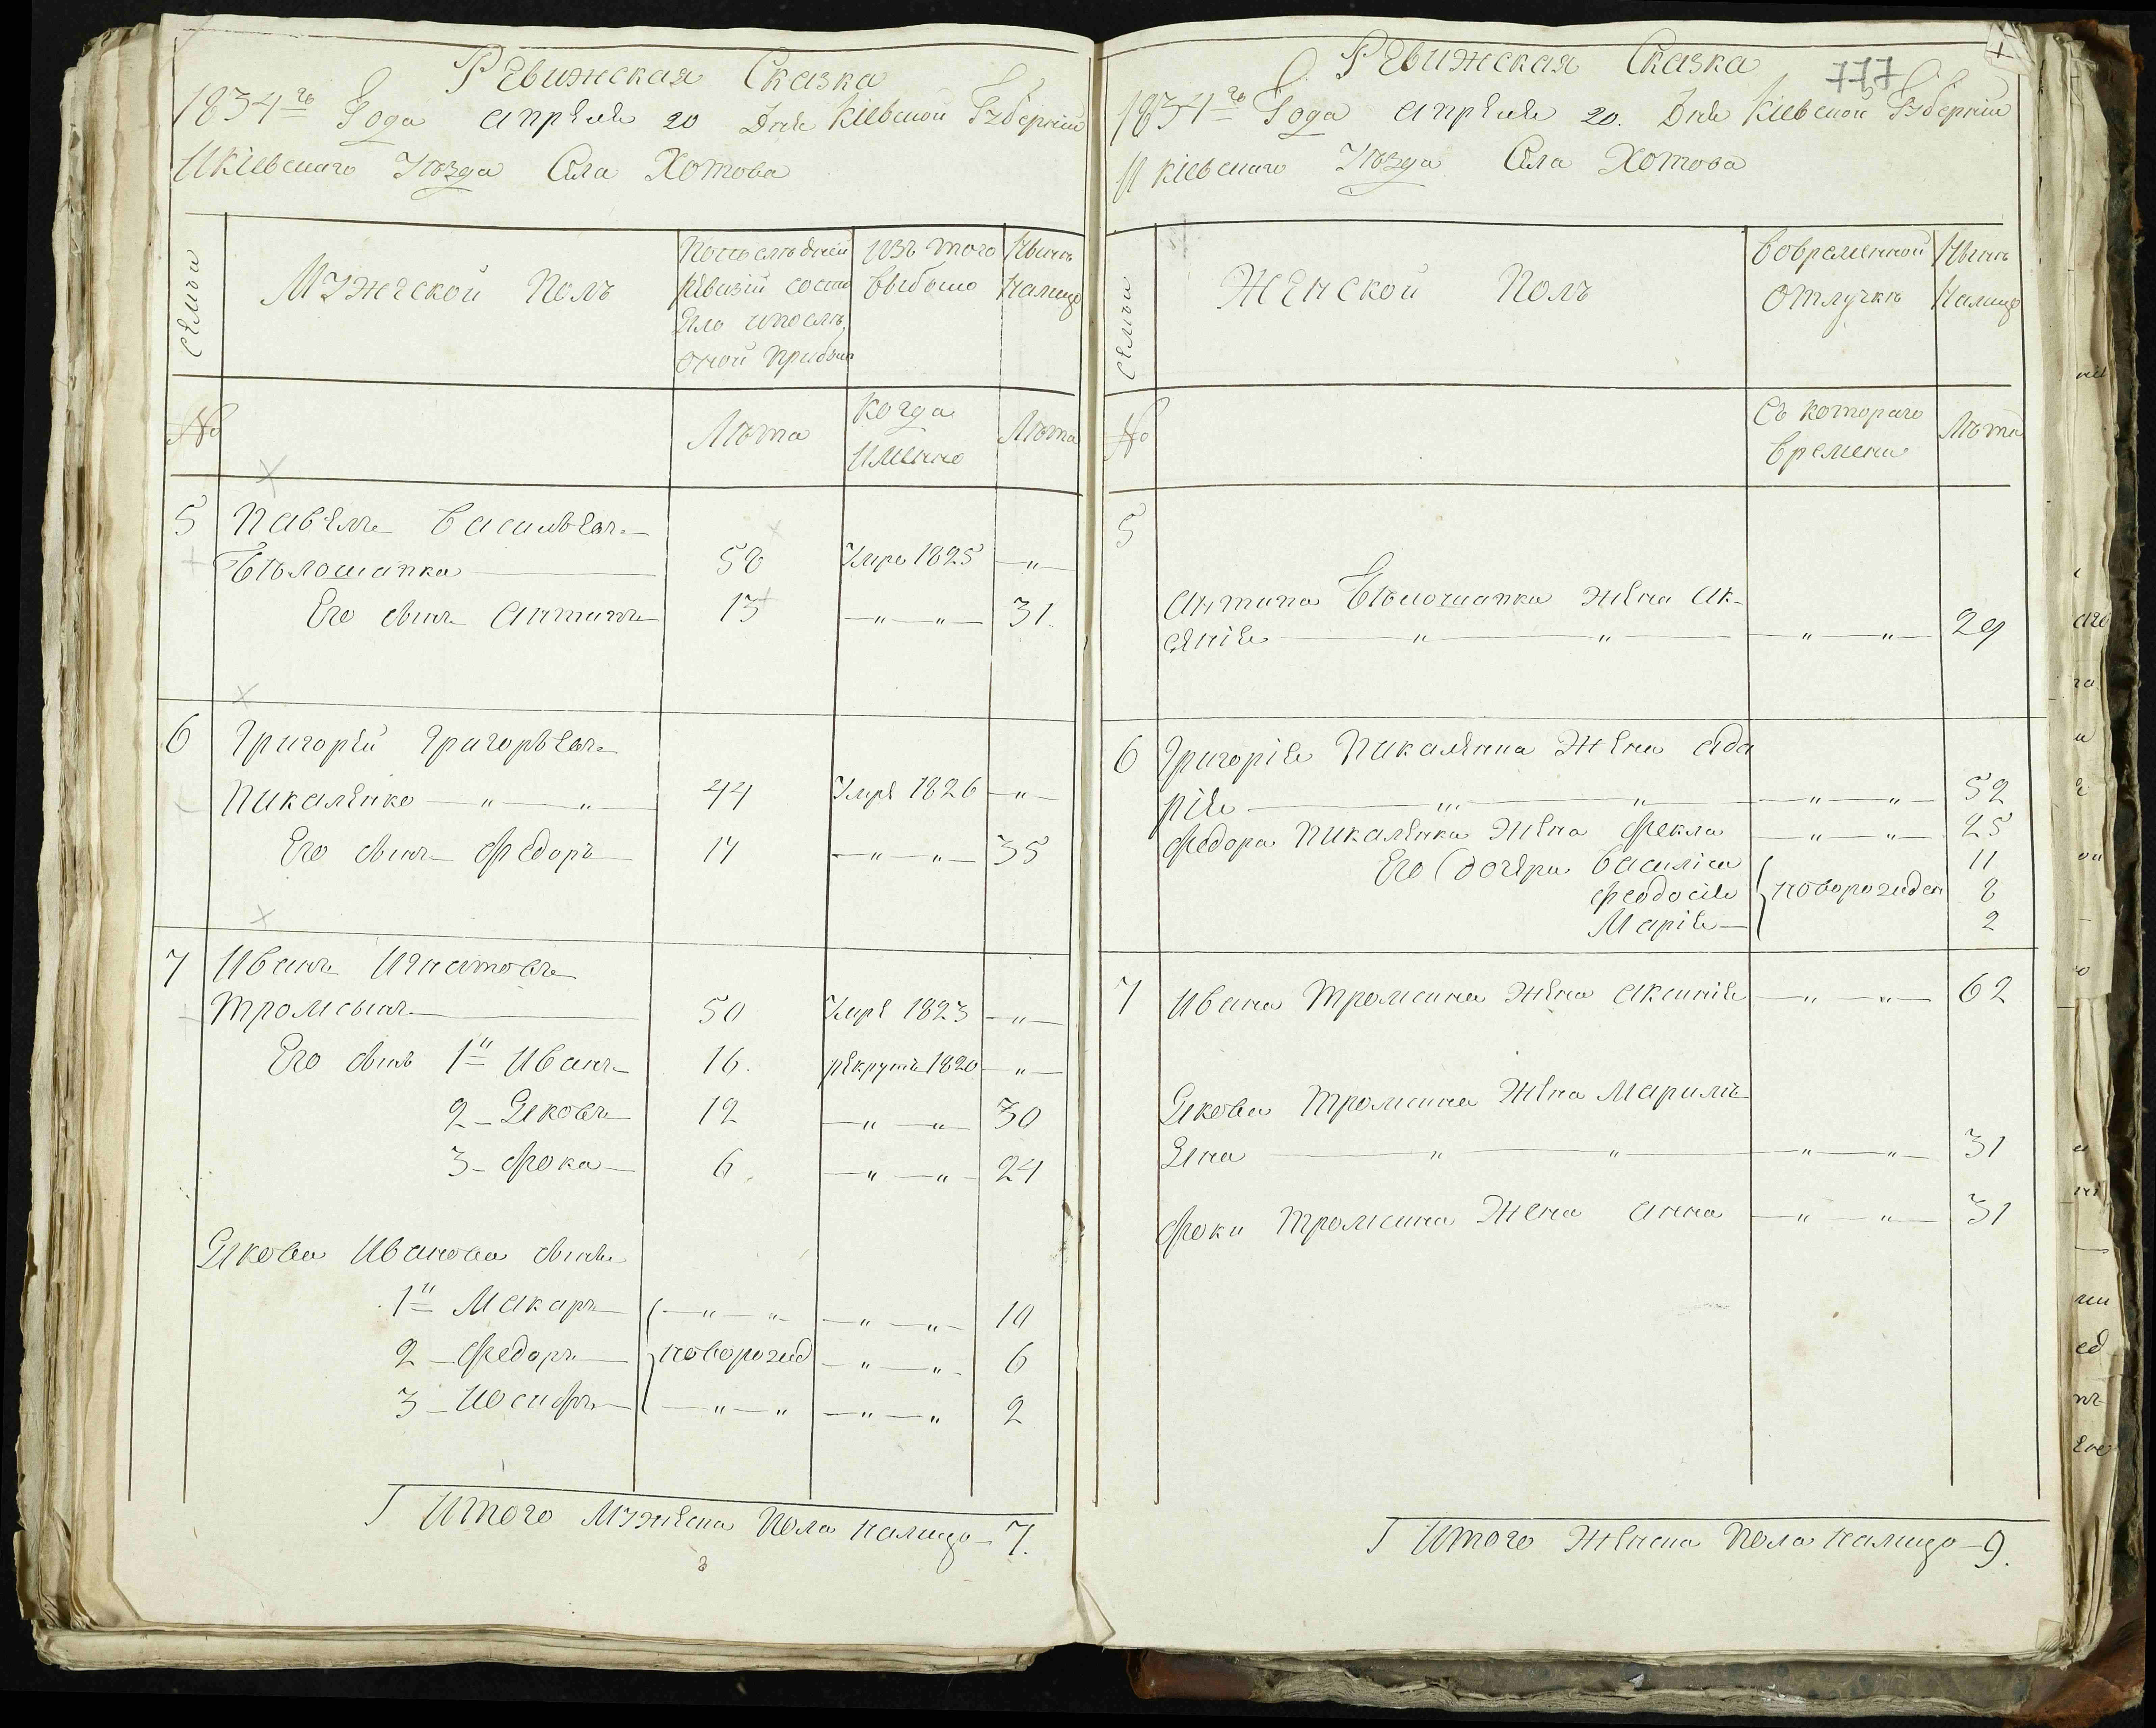 Ревижская Сказка
1834го Года апреля 20 Дня Кіевской Губерніи
И Кіевскаго Уѣзда Села Хотова
Семьи
Мужеской Полъ
По послѣдней
ревизіи состо
яло и послѣ
оной прибыло
Изъ того
выбыло
Нынѣ
налицо
№
Лѣта
Когда
именно
Лѣта
5 Павелъ Васильевъ
Бѣлошапка 58 Умре 1825 — " —
Его сынъ Антипъ 13 — " — " — 31.
6 Григорей Григорьевъ
Пикаленко — " — " — 44 Умре 1826 — " —
Его сынъ Федоръ 17 — " — " — 35
7 Иванъ Игнатовъ
Тромсынъ 50 Умре 1823 — " —
Его сынъ 1й Иванъ 16. рекрутъ 1820 — " —
2 – Яковъ 12 — " — " — 30
3 – Фока 6. — " — " — 24
Якова Иванова сыны
1й Макаръ — " — " — " — " — 10
2 – Федоръ новорожд — " — " — 6
3 – Иосифъ — " — " — " — " 2
Итого Мужеска Пола налицо – 7.
777
Ревижская Сказка
1834го Года апреля 20. Дня Кіевской Губерніи
И Кіевскаго Уѣзда Села Хотова
Семьи
Женской Полъ
Во временной
отлучкѣ
Нынѣ
налицо
№
Съ котораго
времени
Лѣта
5
Антипа Бѣлошапки жена Ак-
сенія — " — " — — " — " — 29
6 Григорія Пикаленка жена Ода
рія — " — " — — " — " — 52
Федора Пикаленка жена Фекла — " — " — 25
Его дочери Василіса 11
Феодосія новорожден 8
Марія 2
7 Ивана Тромсина жена Аксинія — " — " — 62
Якова Тромсина жена Маримъ
Яна — " — " — — " — " — 31
Фоки Тромсина жена Анна — " — " — 31
Итого Женска Пола налицо – 9.